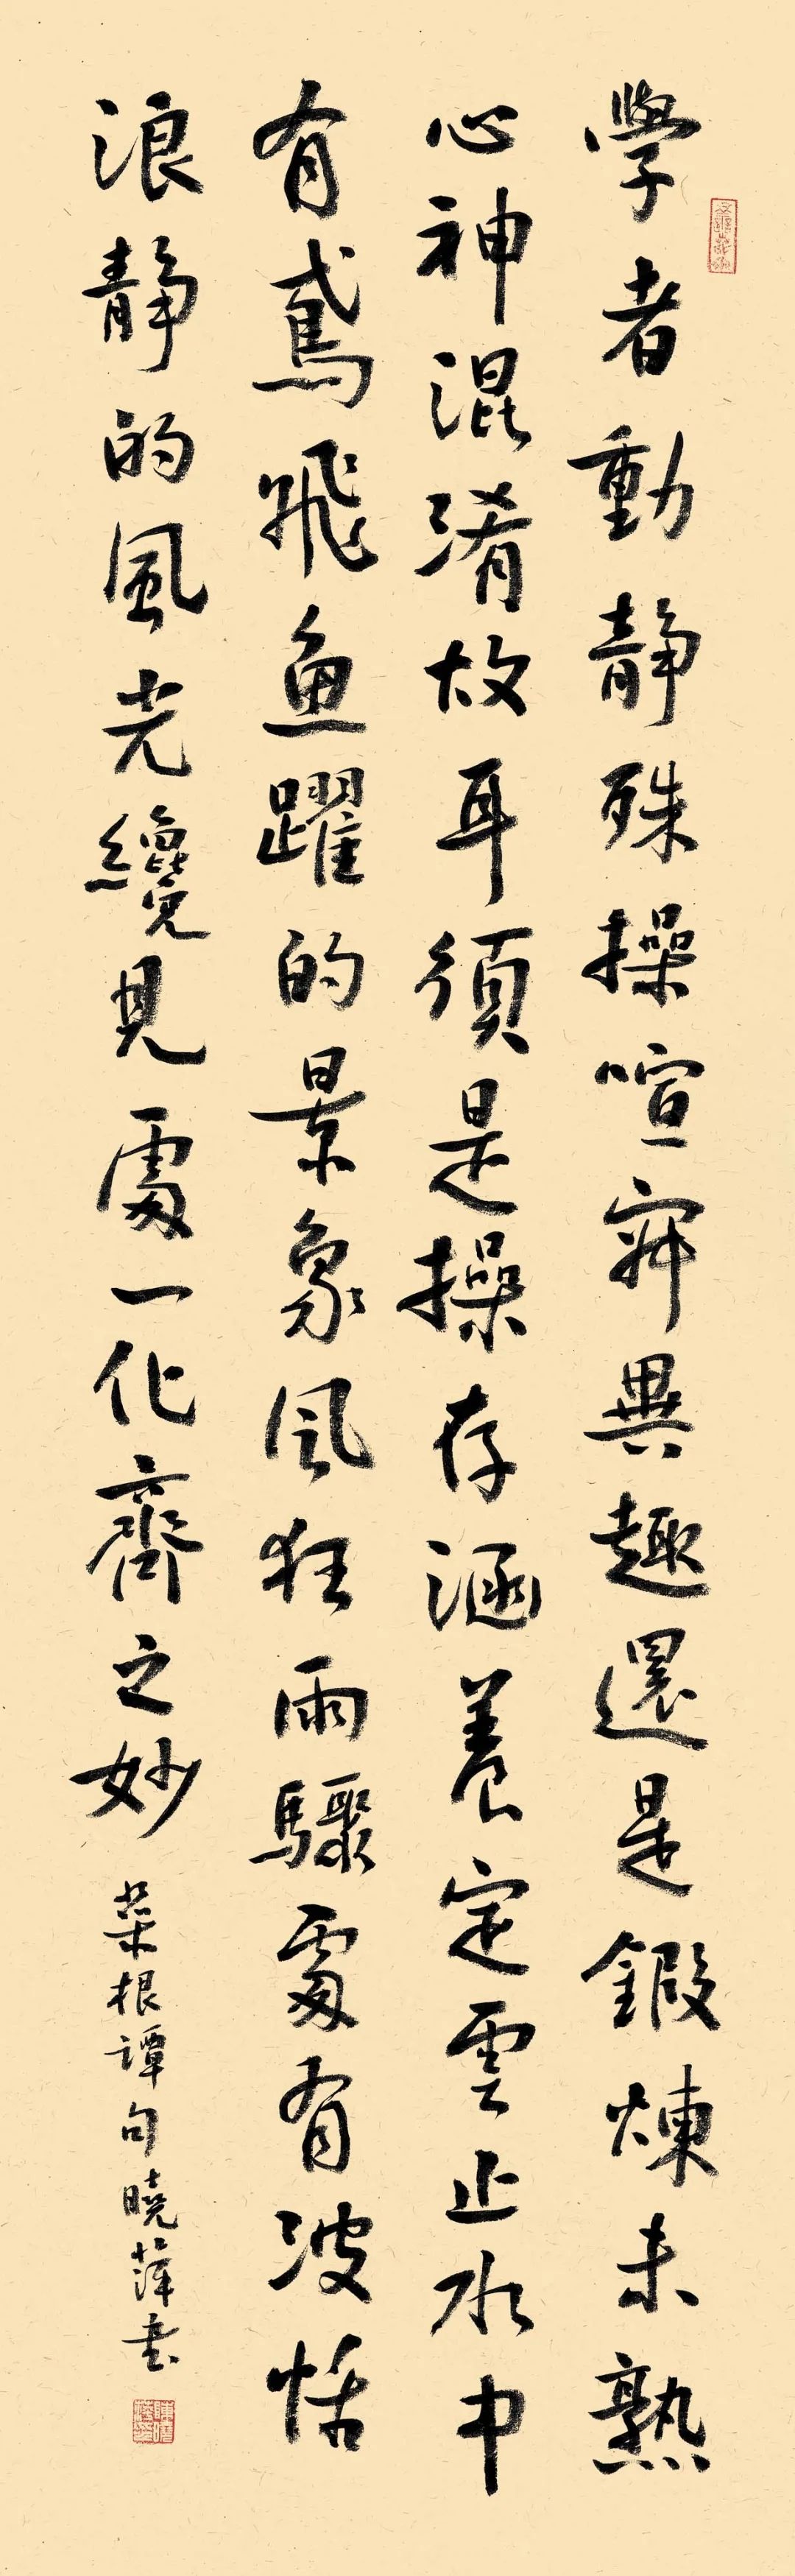 學者動靜殊操喧寂異趣還是鍛煉未熟
心神混淆故耳須是操存涵養定雲止水中
有鳶飛魚躍的景象風狂雨驟處有波恬
浪靜的風光纔見處一化齊之妙
菜根譚句曉萍書